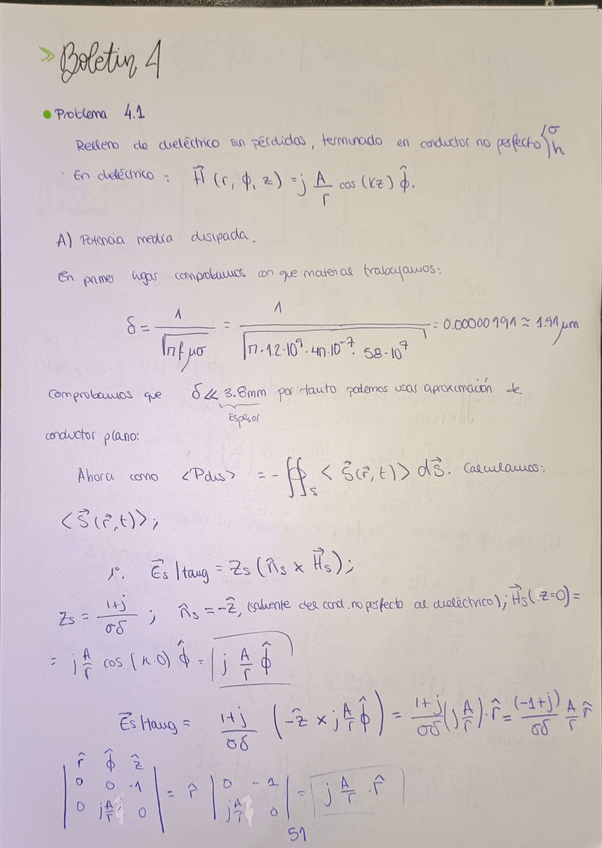 » Boletín 4
• Problema 4.1
Relleno de dieléctrico sin pérdidas, terminado en conductor no perfecto {σ h
· En dieléctrico: H⃗ (r, ϕ, z) = j A/r cos(kz) ϕ̂.
A) Potencia media disipada.
En primer lugar comprobamos con que material trabajamos:
δ = 1/√(πfμσ) = 1/√(π·1.2·10⁹·4π·10⁻⁷·58·10⁶) = 0.00000191 ≈ 1.91 μm
comprobamos que δ ≪ 3.8mm por tanto podemos usar aproximación de
Espesor
conductor plano:
Ahora como <Pdis> = -∯s <S⃗(r⃗,t)> dS⃗. Calculamos:
<S⃗(r⃗,t)>;
1º. E⃗s|tang = Zs (n̂s x H⃗s);
Zs = (1+j)/(σδ) ; n̂s = -ẑ, (saliente del cond. no perfecto al dieléctrico); H⃗s(z=0) =
= j A/r cos(k·0) ϕ̂ = j A/r ϕ̂
E⃗s|tang = (1+j)/(σδ) (-ẑ x j A/r ϕ̂) = (1+j)/(σδ) (j A/r)·r̂ = (-1+j)/(σδ) A/r r̂
| r̂ ϕ̂ ẑ |
| 0 0 -1 | = r̂ | 0 -1 | = j A/r · r̂
| 0 j A/r 0 | | j A/r 0 |
51